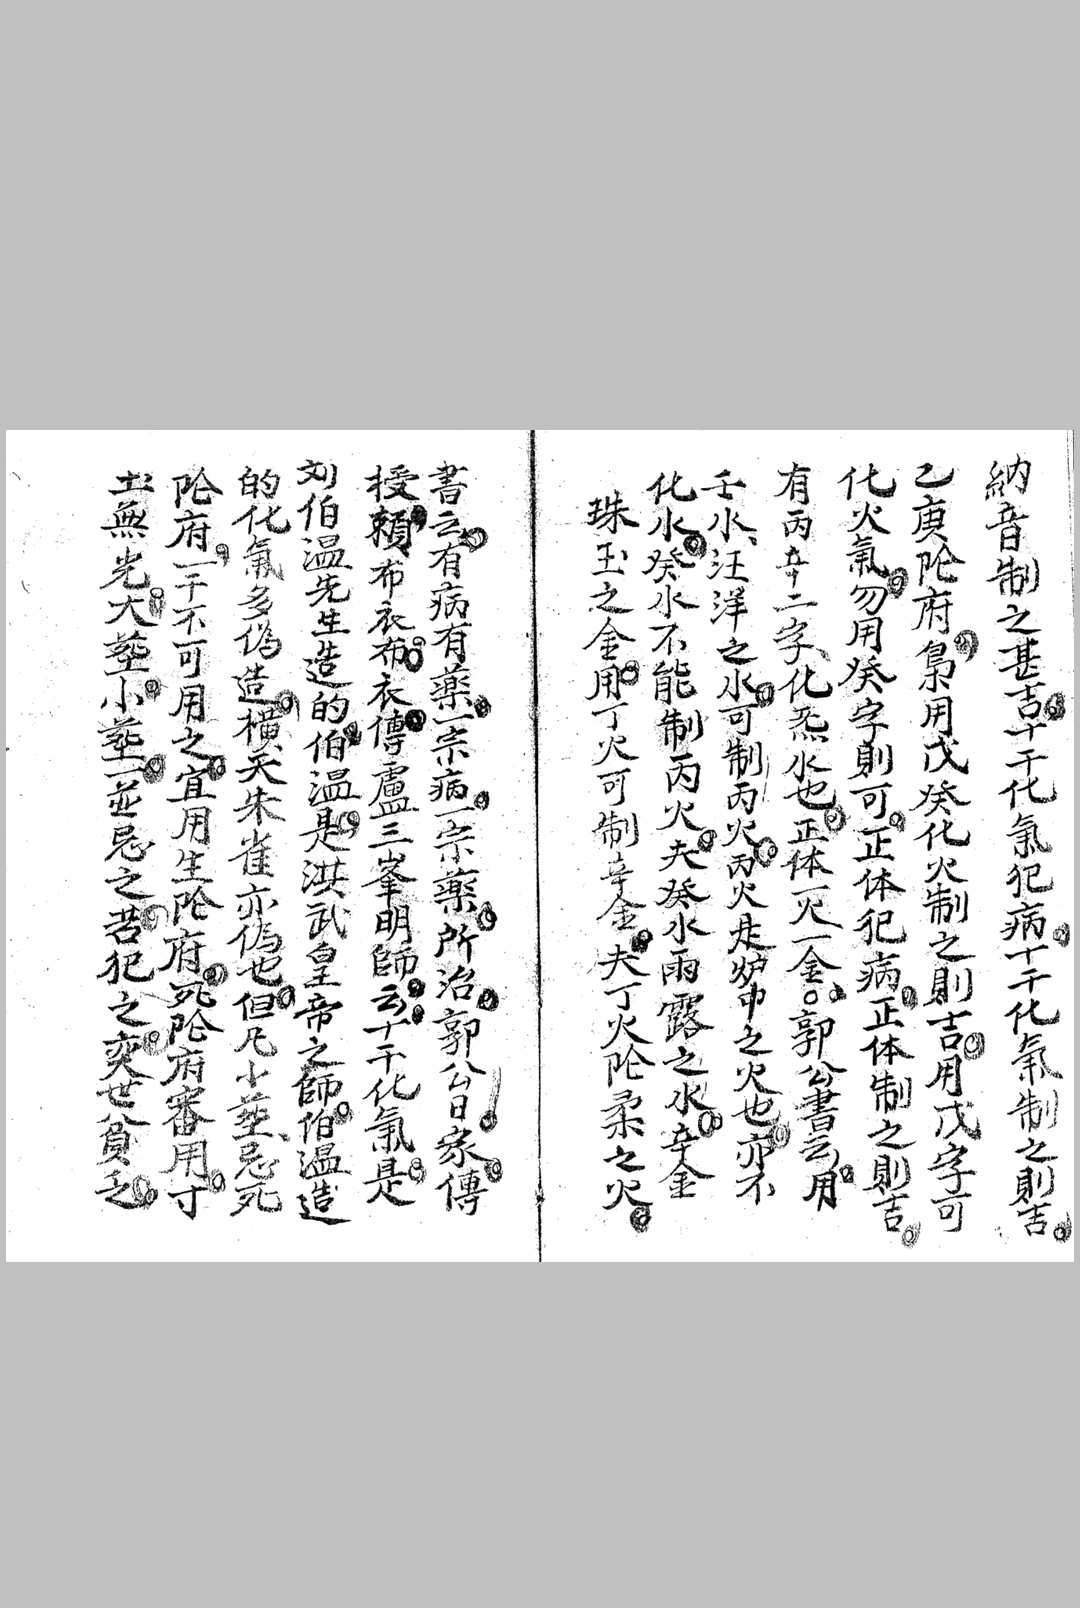 納音制之甚吉十干化氣犯病十干化氣制之則吉
乙庚阾府梟用戊癸化火制之則吉用戊字可
化火氣勿用癸字則可正体犯病正体制之則吉
有丙辛二字化炁水也正体一火一金○郭公書云用
壬水汪洋之水可制丙火丙火是炉中之火也亦不
化水癸水不能制丙火夫癸水雨露之水辛金
珠玉之金用丁火可制辛金夫丁火阾柔之火
書云有病有藥一宗病一宗藥所治郭公曰家傳
授賴布衣布衣傳盧三峯明師云十干化氣是
刘伯温先生造的伯温是洪武皇帝之師伯温造
的化氣多偽造橫天朱雀亦偽也但凢小塟忌死
阾府一干不可用之宜用生阾府死阾府審用寸
土無光大塟小塟一並忌之若犯之奕世貧乏